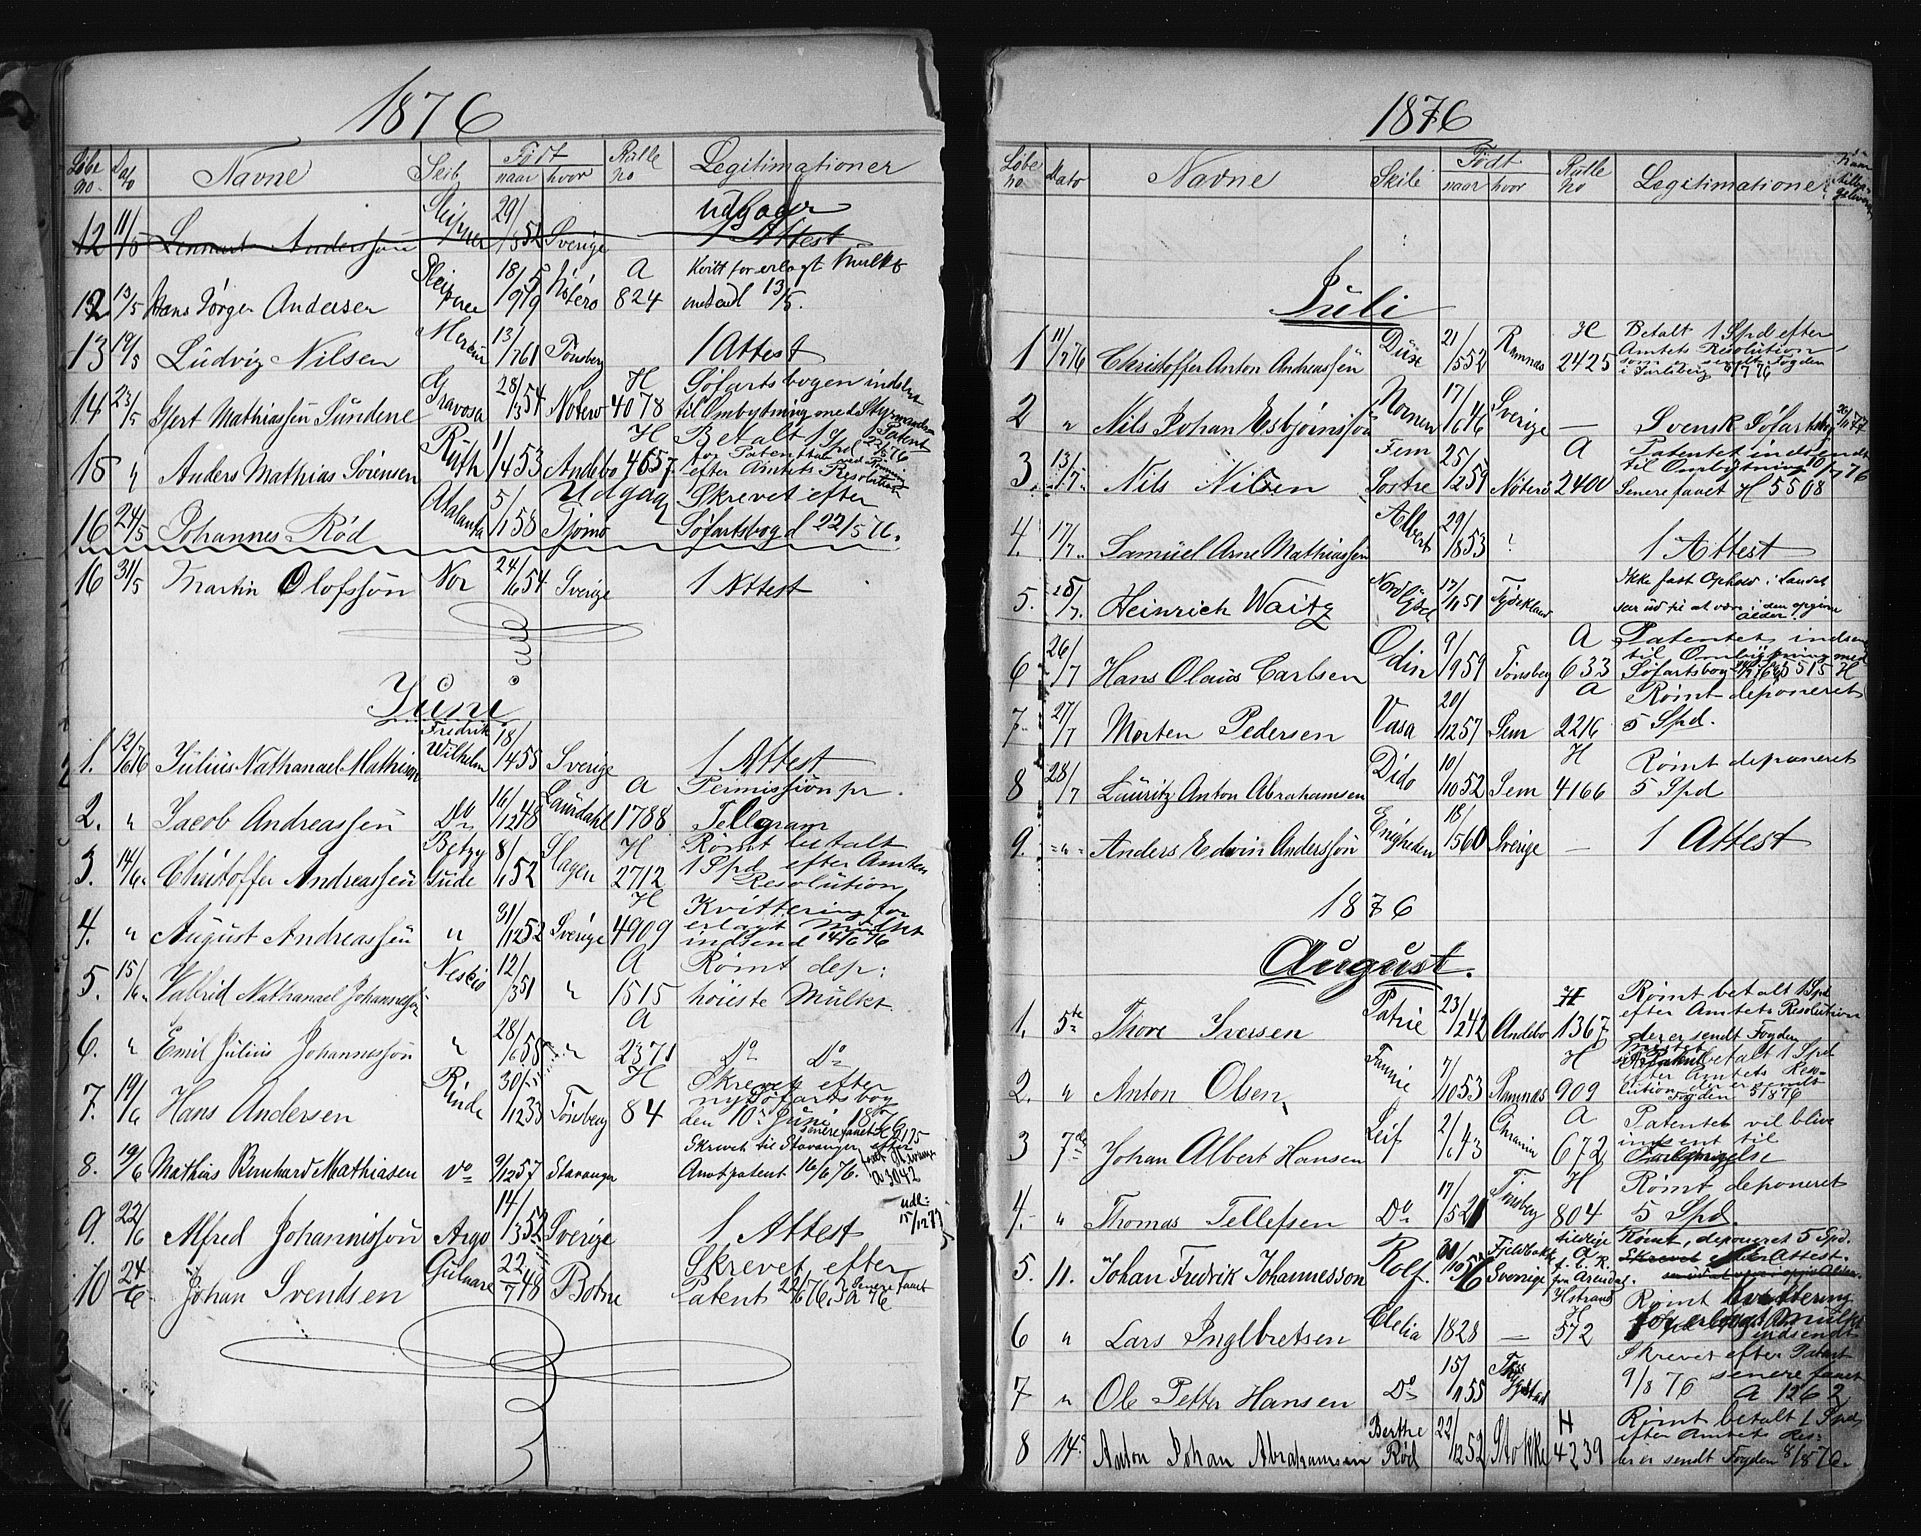 1876
Løbe no Dato Navne Skib Født naar hvor Rulle no Legitimationer
udgaar
12 11/5 Lennart Anderssøn Sleipner 29/3 52 Sverige 1 Attest
12 13/5 Hans Jørgen Andersen Sleipner 18/9 59 Nøterø A 824 Kvitt for erlagt Mulkt indsendt 13/5.
13 19/5 Ludvig Nilsen Merkur 13/7 61 Tønsberg 1 Attest
14 23/5 Gjert Mathiassen Sundene Gravosa 28/3 54 Nøterø H 4078 Søfartsbogen indsendt til Ombytning med Styrmands Patent
15 " Anders Mathias Sörensen Ruth 1/4 53 Andebo H 4657 Betalt 1 Spd for Patentet efter Amtets Resolution
16 24/5 Johannes Rød Atalanta 5/1 58 Udgaar Tjømø Skrevet efter Søfartsbog d 22/5 76.
16 31/5 Martin Olofsson Nor 24/6 54 Sverige 1 Attest
Juni
1. 2/6 76 Julius Nathanael Mathison Fredrik Wilhelm 18/4 55 Sverige 1 Attest
2. " Jacob Andreassen Do 16/12 48 Laurdahl A 1788 Permission pr. Tellegram
3. 14/6 Christoffer Andreassen Betzy Gude 8/1 52 Slagen H 2712 Rømt betalt 1 Spd efter Amtets Resolution
4. " August Andreassen " 31/12 52 Sverige H 4909 Kvittering for erlagt Mulkt indsend 14/6 76
5. 15/6 Valfrid Nathanael Johannesson Neskio 12/3 51 " A 1515 Rømt dep: høieste Mulkt
6. " Emil Julius Johannesson " 28/6 55 " A 2371 Do Do
7. 19/6 Hans Andersen Rinde 30/12 33 Tønsberg H 84 Skrevet efter ny Søfartsbog den 10de Juni 1876
8. 19/6 Mathias Bernhard Mathiasen Do 9/12 57 Stavanger Skrevet til Stavanger efter Amtpatent 16/6 76. A 3042
9. 22/6 Alfred Johannisson Argo 14/3 52 Sverige 1 Attest udl: 15/12 77
10 24/6 Johan Svendsen Gulnare 22/7 48 Botne Skrevet efter Patent 22/6 76. Senere faaet
1876
Løbe no Dato Navne Skib Født naar hvor Rulle no Legitimationer
Juli
1 11/7 76 Christoffer Anton Andreassen Duse 21/5 52 Ramnæs H 2425 Betalt 1 Spd efter Amtets Resolution som sendt Fogden i Jarlsberg
2 " Nils Johan Esbjørnsson Nornen 17/6 46 Sverige — Svensk Søfartsbog
3. 13/7 Nils Nilsen Fem Søstre 25/12 59 Nøterø A 2400 Patentet indsendt til Ombytning 10/7 76 Senere faaet H 5508
4. 17/7 Samuel Arne Mathiassen Albert 29/8 53 ? 1 Attest
5. 25/7 Heinrich Waitz Nordlyset 17/11 51 Tydskland Ikke fast Ophold i Landet ser ud til at være i den opgivne alder.
6 26/7 Hans Olaus Carlsen Odin 9/9 59 Tønsberg A 633 Patentet indsen til Ombytning med Søfartsbog 5515 H
7 27/7 Morten Pedersen Vasa 20/12 57 Sem A 2216 Rømt deponeret 5 Spd.
8 28/7 Lauritz Anton Abrahamsen Dido 10/10 52 Sem H 4166 Rømt deponeret 5 Spd
9. " Anders Edvin Anderssøn Enigheden 18/5 60 Sverige — 1 Attest
1876
August.
1. 5te Thore Iversen Patrie 23/12 42 Andebo H 1367 Rømt betalt 1 Spd efter Amtets Resolution der er sendt Fogden
2. " Anton Olsen Fannie 7/10 53 Ramnæs H 909 betalt 1 Spd efter Amtets Resolution der er sendt Fogden 5/8 76
3 7de Johan Albert Hansen Leif 2/6 43 Chrania A 672 Patentet vil blive indsent til
4. " Thomas Tellefsen Do 17/5 21 Tønsberg H 804 Rømt deponeret 5 Spd.
5. 11. Johan Fredrik Johannesson Rolf. 30/10 56 Sverige Rømt, deponeret 5 Spd. Skrevet efter Attest.
6 " Lars Inglbretsen Clelia 1828 — H 572 Rømt Kvittering for erlagt Mulkt indsendt
7 " Ole Petter Hansen Do 15/1 55 Skrevet efter Patent 9/8 76 senere faaet A 1262
8 14de Anton Johan Abrahamsen Berthe Rød 22/12 52 Stokke H 4239 Rømt betalt 1 Spd, efter Amtets Res: der er sendt Fogden 8/8 76.